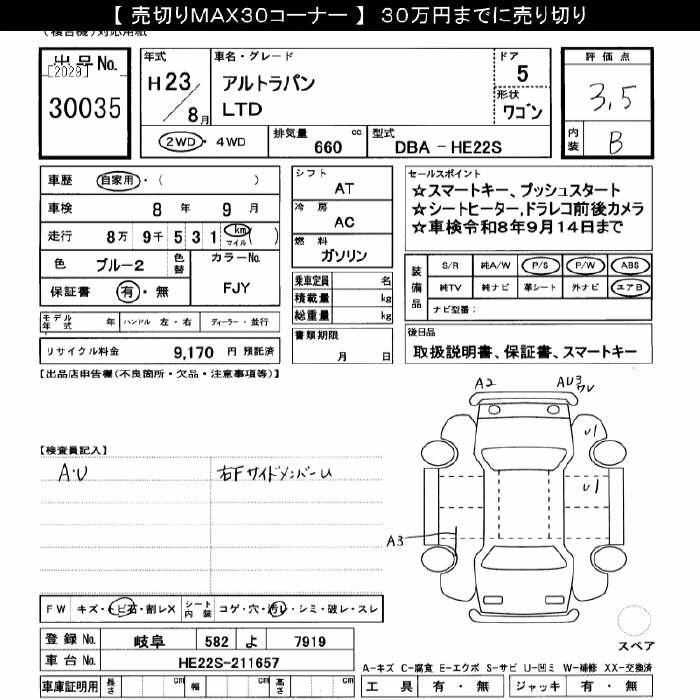 【 売切りMAX30コーナー 】 30万円までに売り切り
(複合機)対応用紙
出品No.
[2029]
30035
年式
H23/8月
車名・グレード
アルトラパン
LTD
ドア
5
形状
ワゴン
評価点
3,5
内装
B
2WD・4WD
排気量
660 cc
型式
DBA - HE22S
車歴 自家用・( )
車検 8年 9月
走行 8万 9千 5 3 1 km マイル ( )
色 ブルー2 色替
カラーNo.
FJY
保証書 有・無
シフト
AT
冷房
AC
燃料
ガソリン
乗車定員 名
積載量 kg
総重量 kg
セールスポイント
☆スマートキー、プッシュスタート
☆シートヒーター,ドラレコ前後カメラ
☆車検令和8年9月14日まで
装備品
S/R 純A/W P/S P/W ABS
純TV 純ナビ 革シート 外ナビ エアB
ナビ型番:
モデル年式 年 ハンドル 左・右 ディーラー・並行
リサイクル料金 9,170 円 預託済
書類期限
月 日
後日品
取扱説明書、保証書、スマートキー
【出品店申告欄(不良箇所・欠品・注意事項等)】
A2
AU3
WU
U1
U1
A3
【検査員記入】
A・U
右Fサイドメンバーu
FW キズ・トビ石・割レX
シート内装 コゲ・穴・汚レ・シミ・破レ・スレ
登録No. 岐阜 582 よ 7919
車台No. HE22S-211657
車庫証明用 長さ cm 幅 cm 高さ cm
スペア
A-キズ C-腐食 E-エクボ S-サビ U-凹ミ W-補修 XX-交換済
工具 有・無 ジャッキ 有・無